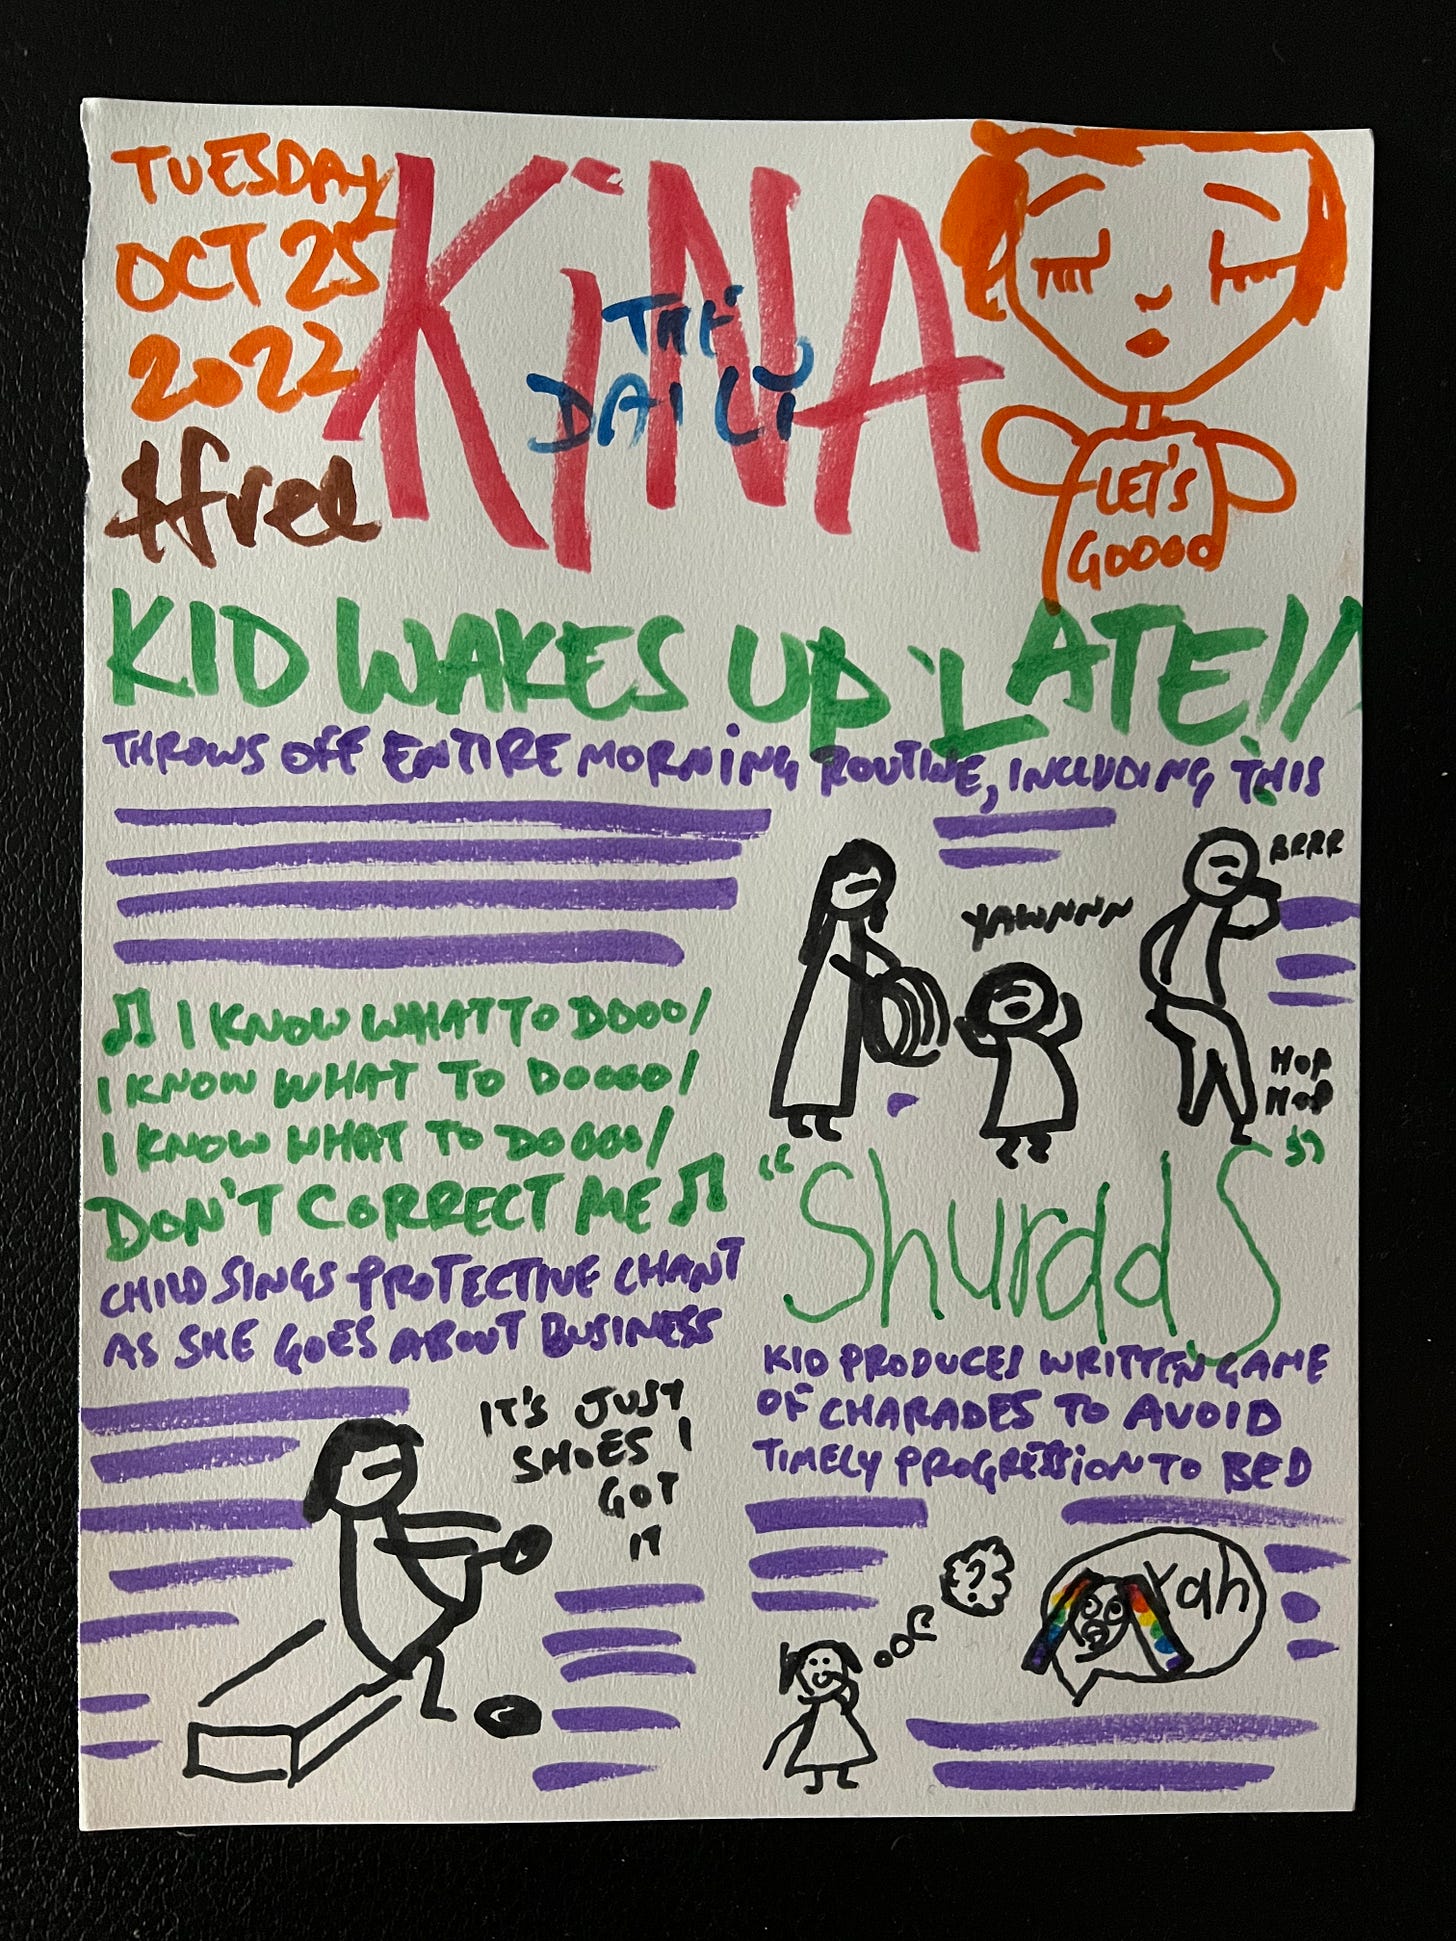 TUESDAY
OCT 25
2022
#free
THE
DAILY
KiNA
LET'S
GOOOO
KID WAKES UP LATE!!
THROWS OFF ENTIRE MORNING ROUTINE, INCLUDING THIS
BRRR
YAWNNNN
HOP
HOP
♫ I KNOW WHAT TO DOOOO/
I KNOW WHAT TO DOOOO/
I KNOW WHAT TO DOOOO/
DON'T CORRECT ME ♫
CHILD SINGS PROTECTIVE CHANT
AS SHE GOES ABOUT BUSINESS
IT'S JUST
SHOES I
GOT
IT
"ShurddS"
KID PRODUCES WRITTEN GAME
OF CHARADES TO AVOID
TIMELY PROGRESSION TO BED
?
Yah